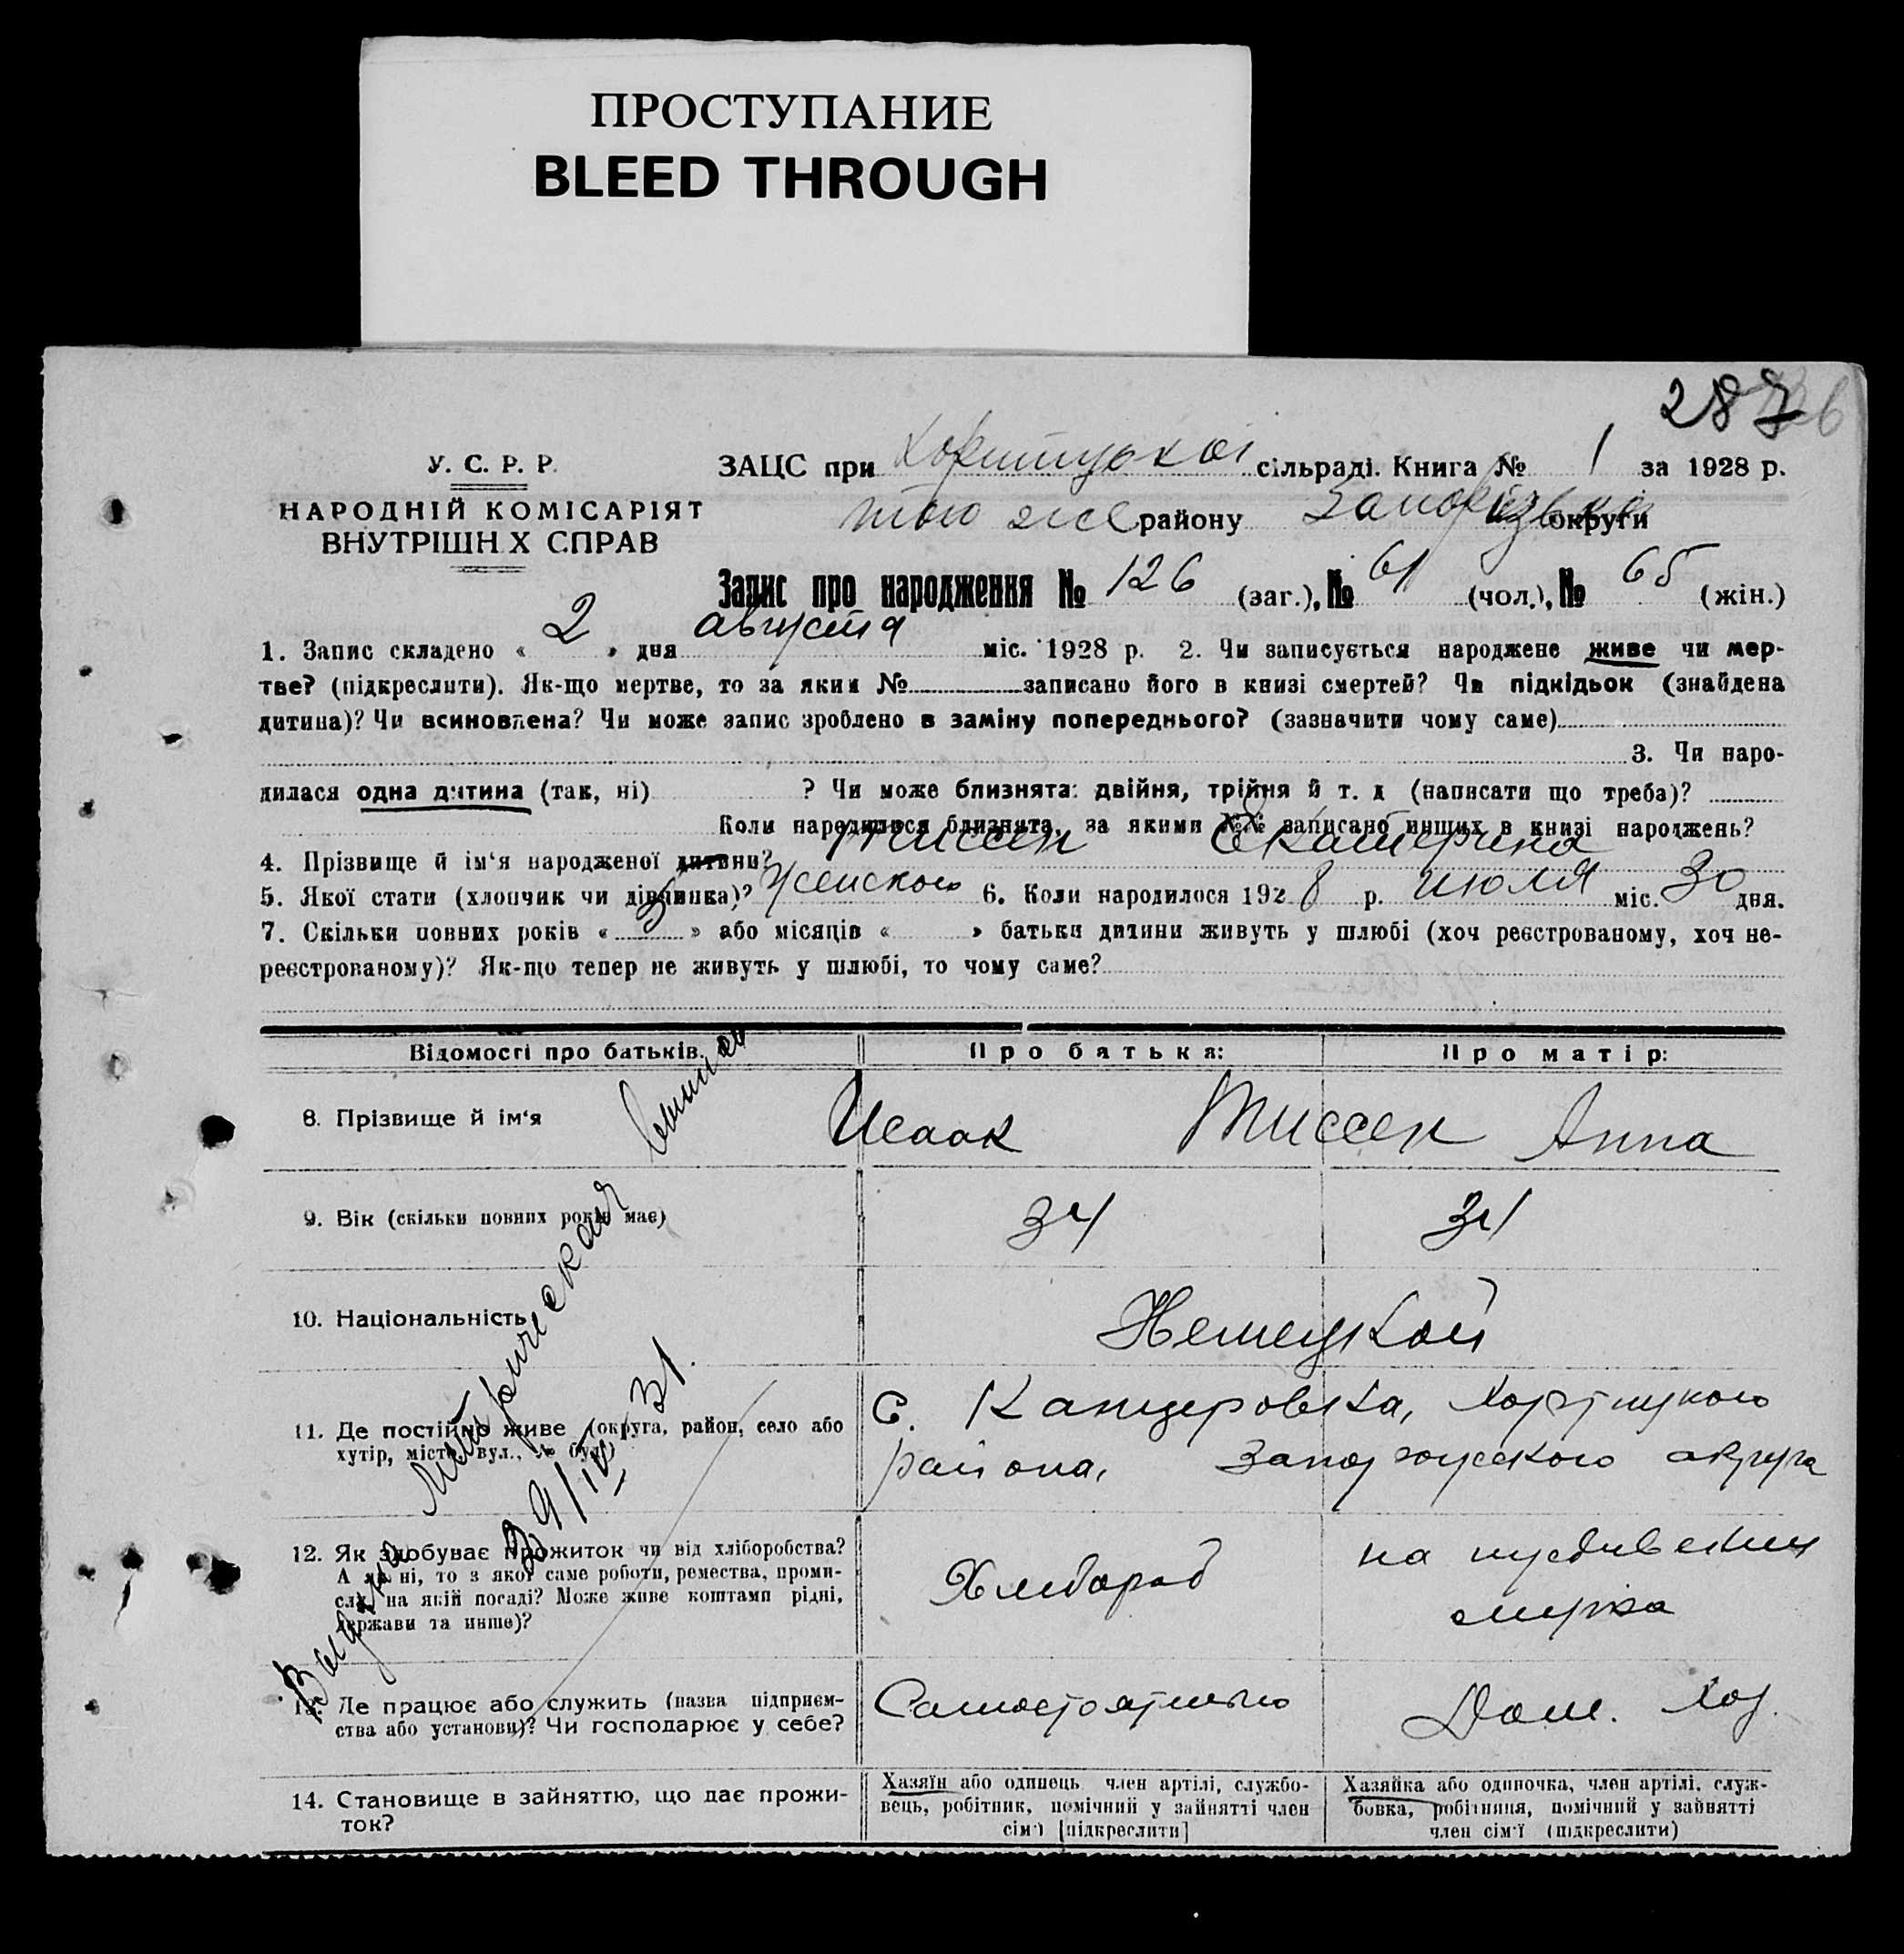 ПРОСТУПАНИЕ
BLEED THROUGH
287
У. С. Р. Р.
НАРОДНІЙ КОМІСАРІЯТ
ВНУТРІШН Х СПРАВ
ЗАЦС при Хортицької сільраді. Книга № 1 за 1928 р.
того же району Запорізької округи
Запис про народження № 126 (заг.), № 61 (чол.), № 65 (жін.)
1. Запис складено « 2 » дня августа міс. 1928 р. 2. Чи записується народжене живе чи мер-
тве? (підкреслити). Як-що мертве, то за яким № записано його в книзі смертей? Чи підкідьок (знайдена
дитина)? Чи всиновлена? Чи може запис зроблено в заміну попереднього? (зазначити чому саме)
3. Чи наро-
дилася одна дитина (так, ні) ? Чи може близнята: двійня, трійня й т. д (написати що треба)?
Коли народилося близнята, за якими №№ записано инших в книзі народжень?
4. Прізвище й ім‘я народженої дитини? Тиссен Екатерина
5. Якої стати (хлопчик чи дівчинка)? Женского 6. Коли народилося 1928 р. июля міс. 30 дня.
7. Скільки повних років « 5 » або місяців « » батьки дитини живуть у шлюбі (хоч реєстрованому, хоч не-
реєстрованому)? Як-що тепер не живуть у шлюбі, то чому саме?
Відомості про батьків. Про батька: Про матір:
8. Прізвище й ім‘я Исаак Тиссен Анна
9. Вік (скільки повних років має) 34 34
10. Національність Немецкой
11. Де постійно живе (округа, район, село або
хутір, місто, вул., № буд.)
С. Канцеровка, Хортицкого
района, Запорожского округа
12. Як здобуває прожиток чи від хліборобства?
А як ні, то з якої саме роботи, ремества, проми-
слу, на якій посаді? Може живе коштами рідні,
держави та инше)?
Хлебороб
на иждивении
мужа
13. Де працює або служить (назва підприєм-
ства або установи)? Чи господарює у себе?
Самостоятельно
Дом. Хоз.
14. Становище в зайняттю, що дає прожи-
ток?
Хазяїн або одинець член артілі, службо-
вець, робітник, помічний у зайнятті член
сім‘ї [підкреслити]
Хазяйка або одиночка, член артілі, служ-
бовка, робітниця, помічний у зайнятті
член сім‘ї (підкреслити)
Выдана Метрическая выпись
29/IV 31.